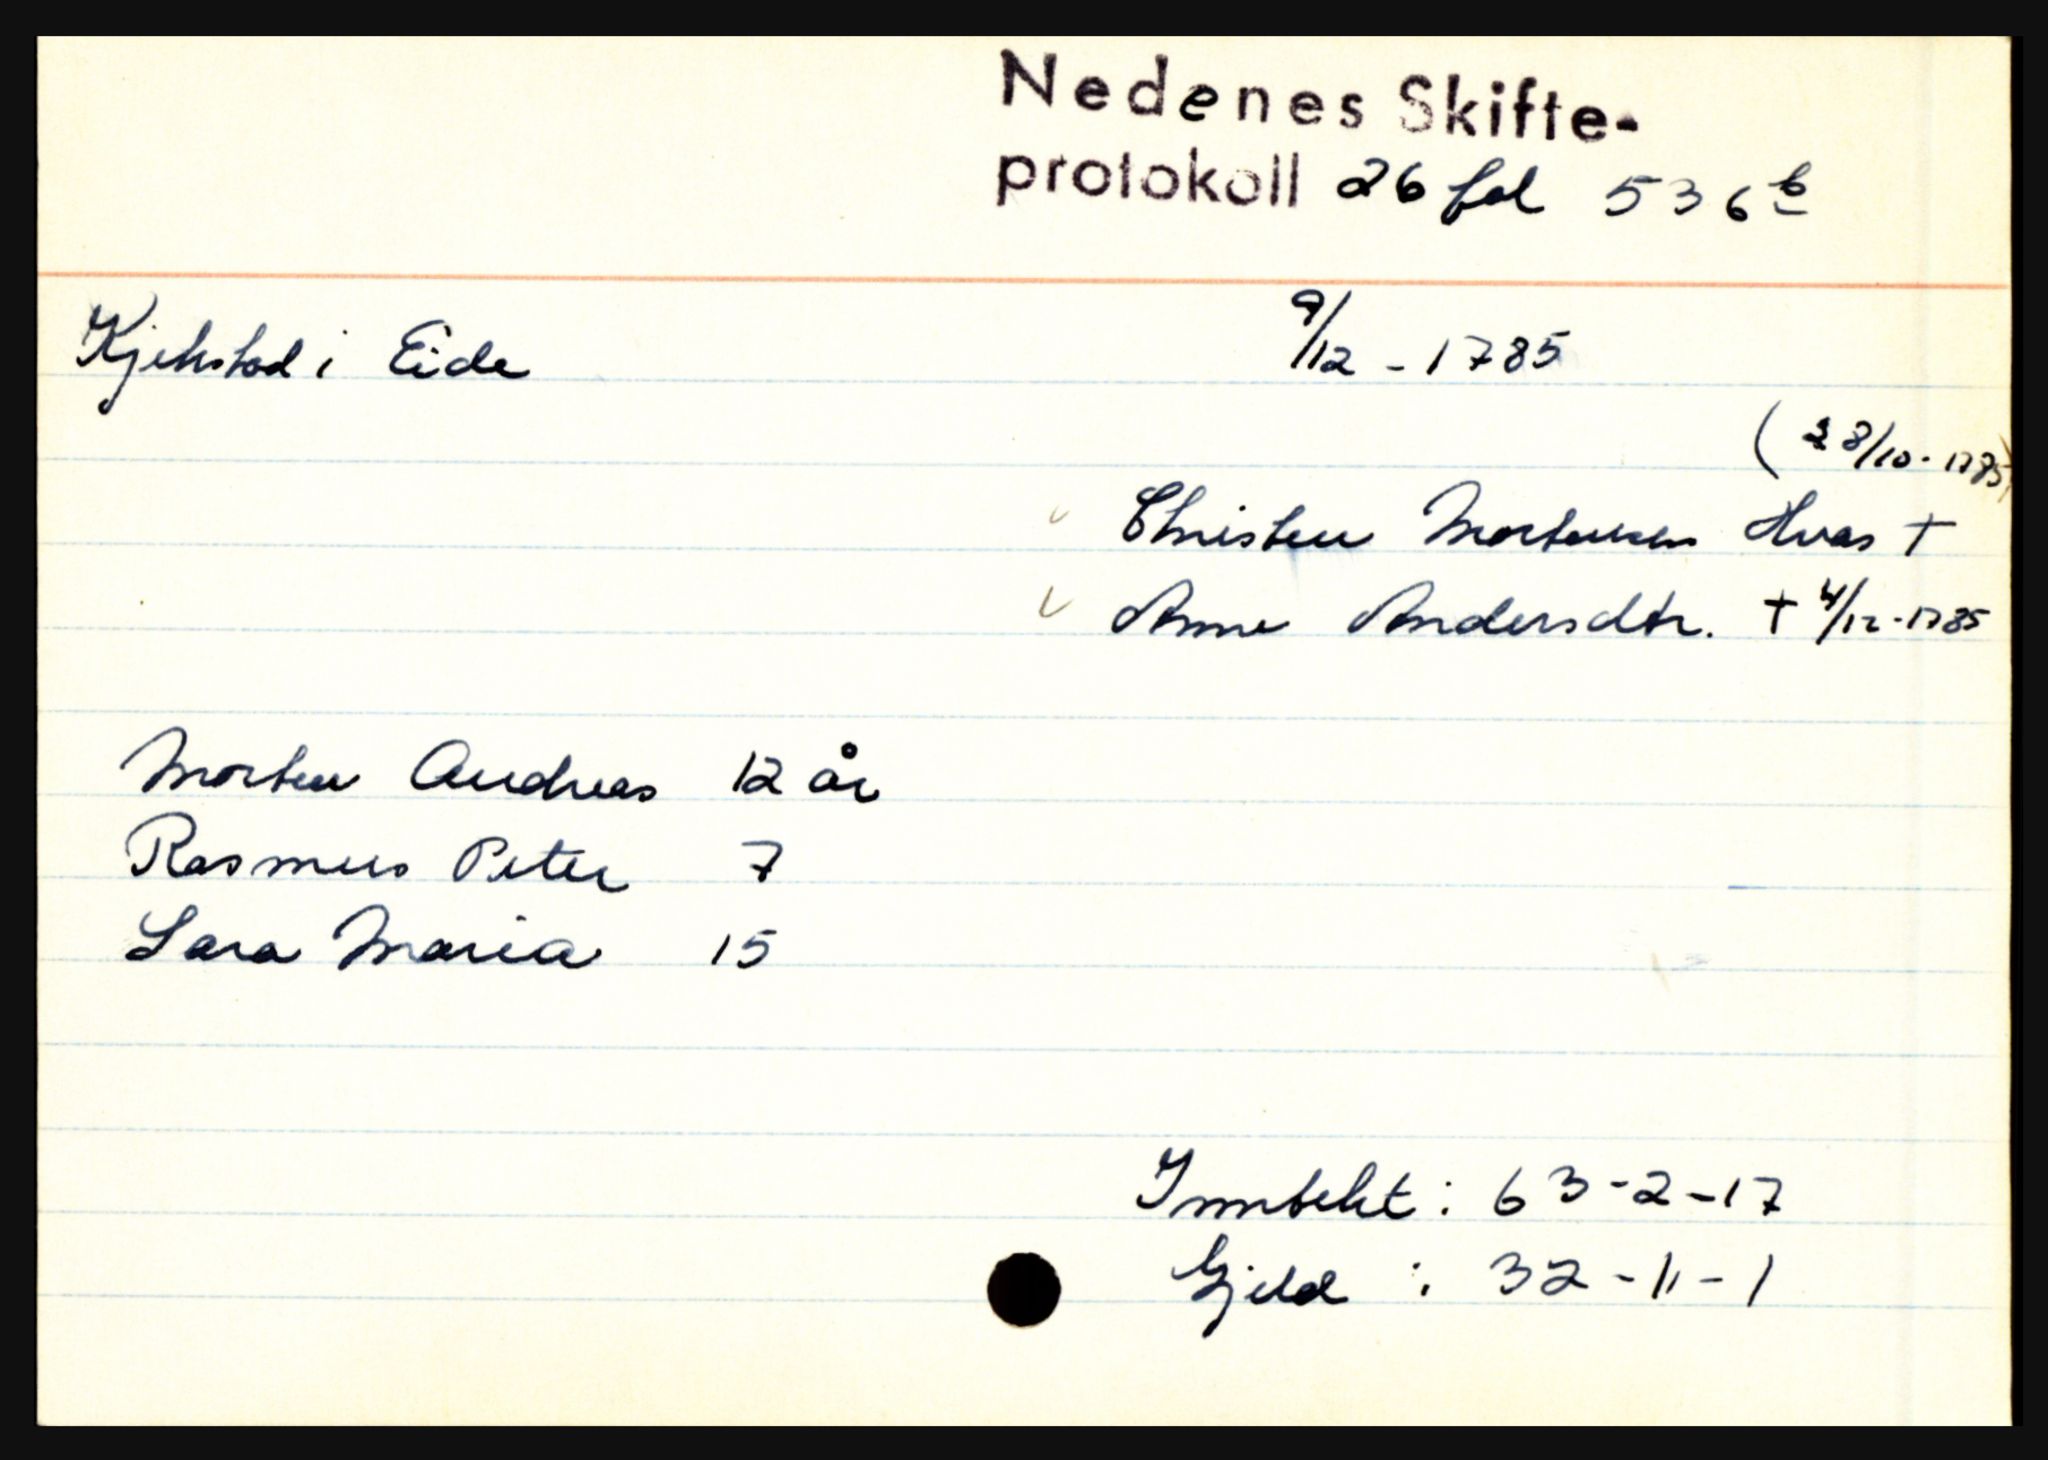 Nedenes Skifte-
protokoll 26 fol 536 b
Kjekstad i Eide 9/12 - 1785
(28/10 - 1785)
Christen Mortensen Hvas †
Anne Andersdtr. † 4/12 - 1785
Morten Andreas 12 år
Rasmus Peter 7
Sara Maria 15
Inntekt : 63-2-17
Gjeld : 32-11-1